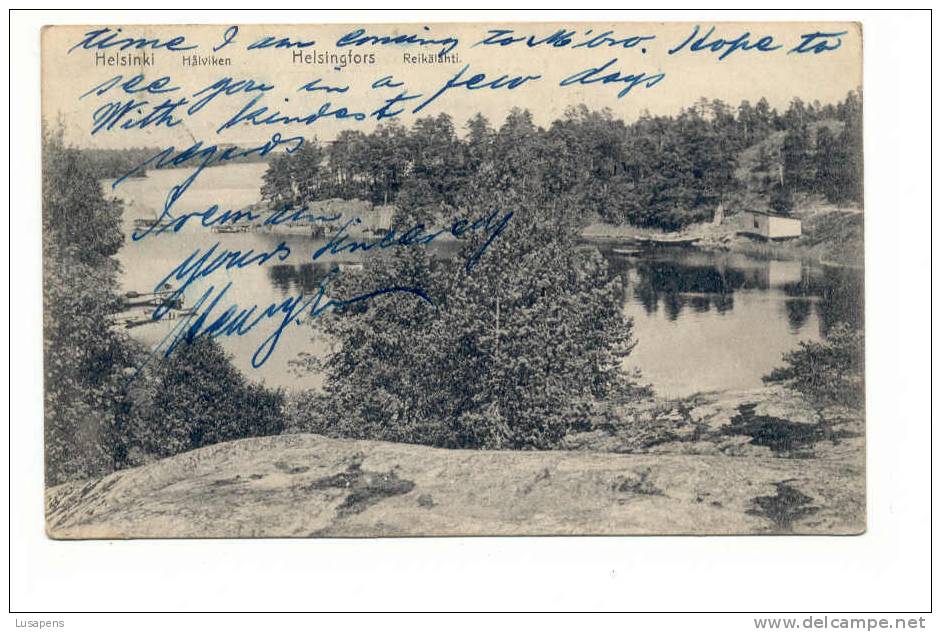 time I am coming to M'bro. Hope to
Helsinki Hålviken Helsingfors Reikälahti.
see you in a few days
With kindest
regards
I remain
yours Sincerely
Henry
Lusapens
www.delcampe.net